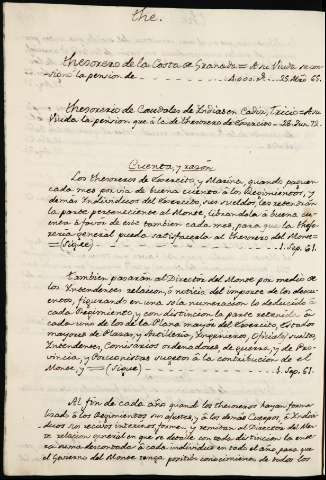 the.
thesorero de la Costa de Granada = A su Viuda se con-
signó la pension de - - - - 4.000 r.s - - - 25. Mzo. 65.
thesorero de Caudales de Indias en Cadiz, Tricio = A su
Viuda la pension que á la de thesorero de Exercito - 26. Jun. 72.
Cuenta, y razón
Los thesoreros de Exercito, y Marina, quando paguen
cada mes por via de buena cuenta á los Regimientos, y
demás Individuos del Exercito, sus sueldos, les retendrán
la parte perteneciente al Monte, librandola á buena cu-
enta á favor de este tambien cada mes, para que la theso-
reria general pueda satisfacerla al thesorero del Monte
= (Sigue) - - - - 1. Sep. 61.
tambien pasarán al Director del Monte por medio de
los Yntendentes relacion, ó noticia del importe de los descu-
entos, figurando en una sola numeracion lo deducido á
cada Regimiento, y con distincion la parte retenida á
cada uno de los de la Plana mayor del Exercito, Estados
mayores de Plazas, y Artilleria, Ingenieros, Oficiales sueltos,
Intendentes, Comisarios ordenadores, de guerra, y de Pro-
vincia, y Pensionistas sugetos á la contribucion de el
Monte, y = (Sigue) - - - - 1. Sep. 61.
Al fin de cada año quando los thesoreros hayan forma-
lizado á los Regimientos sus ajustes, y á los demás Cuerpos, é Indivi-
duos sus recivos interinos formen, y remitan al Director del Mon-
te relacion general en que se detalle con toda distincion la ente-
ra suma descontada á cada individuo en todo el año, para que
el Govierno del Monte tenga positibo conocimiento de todos los